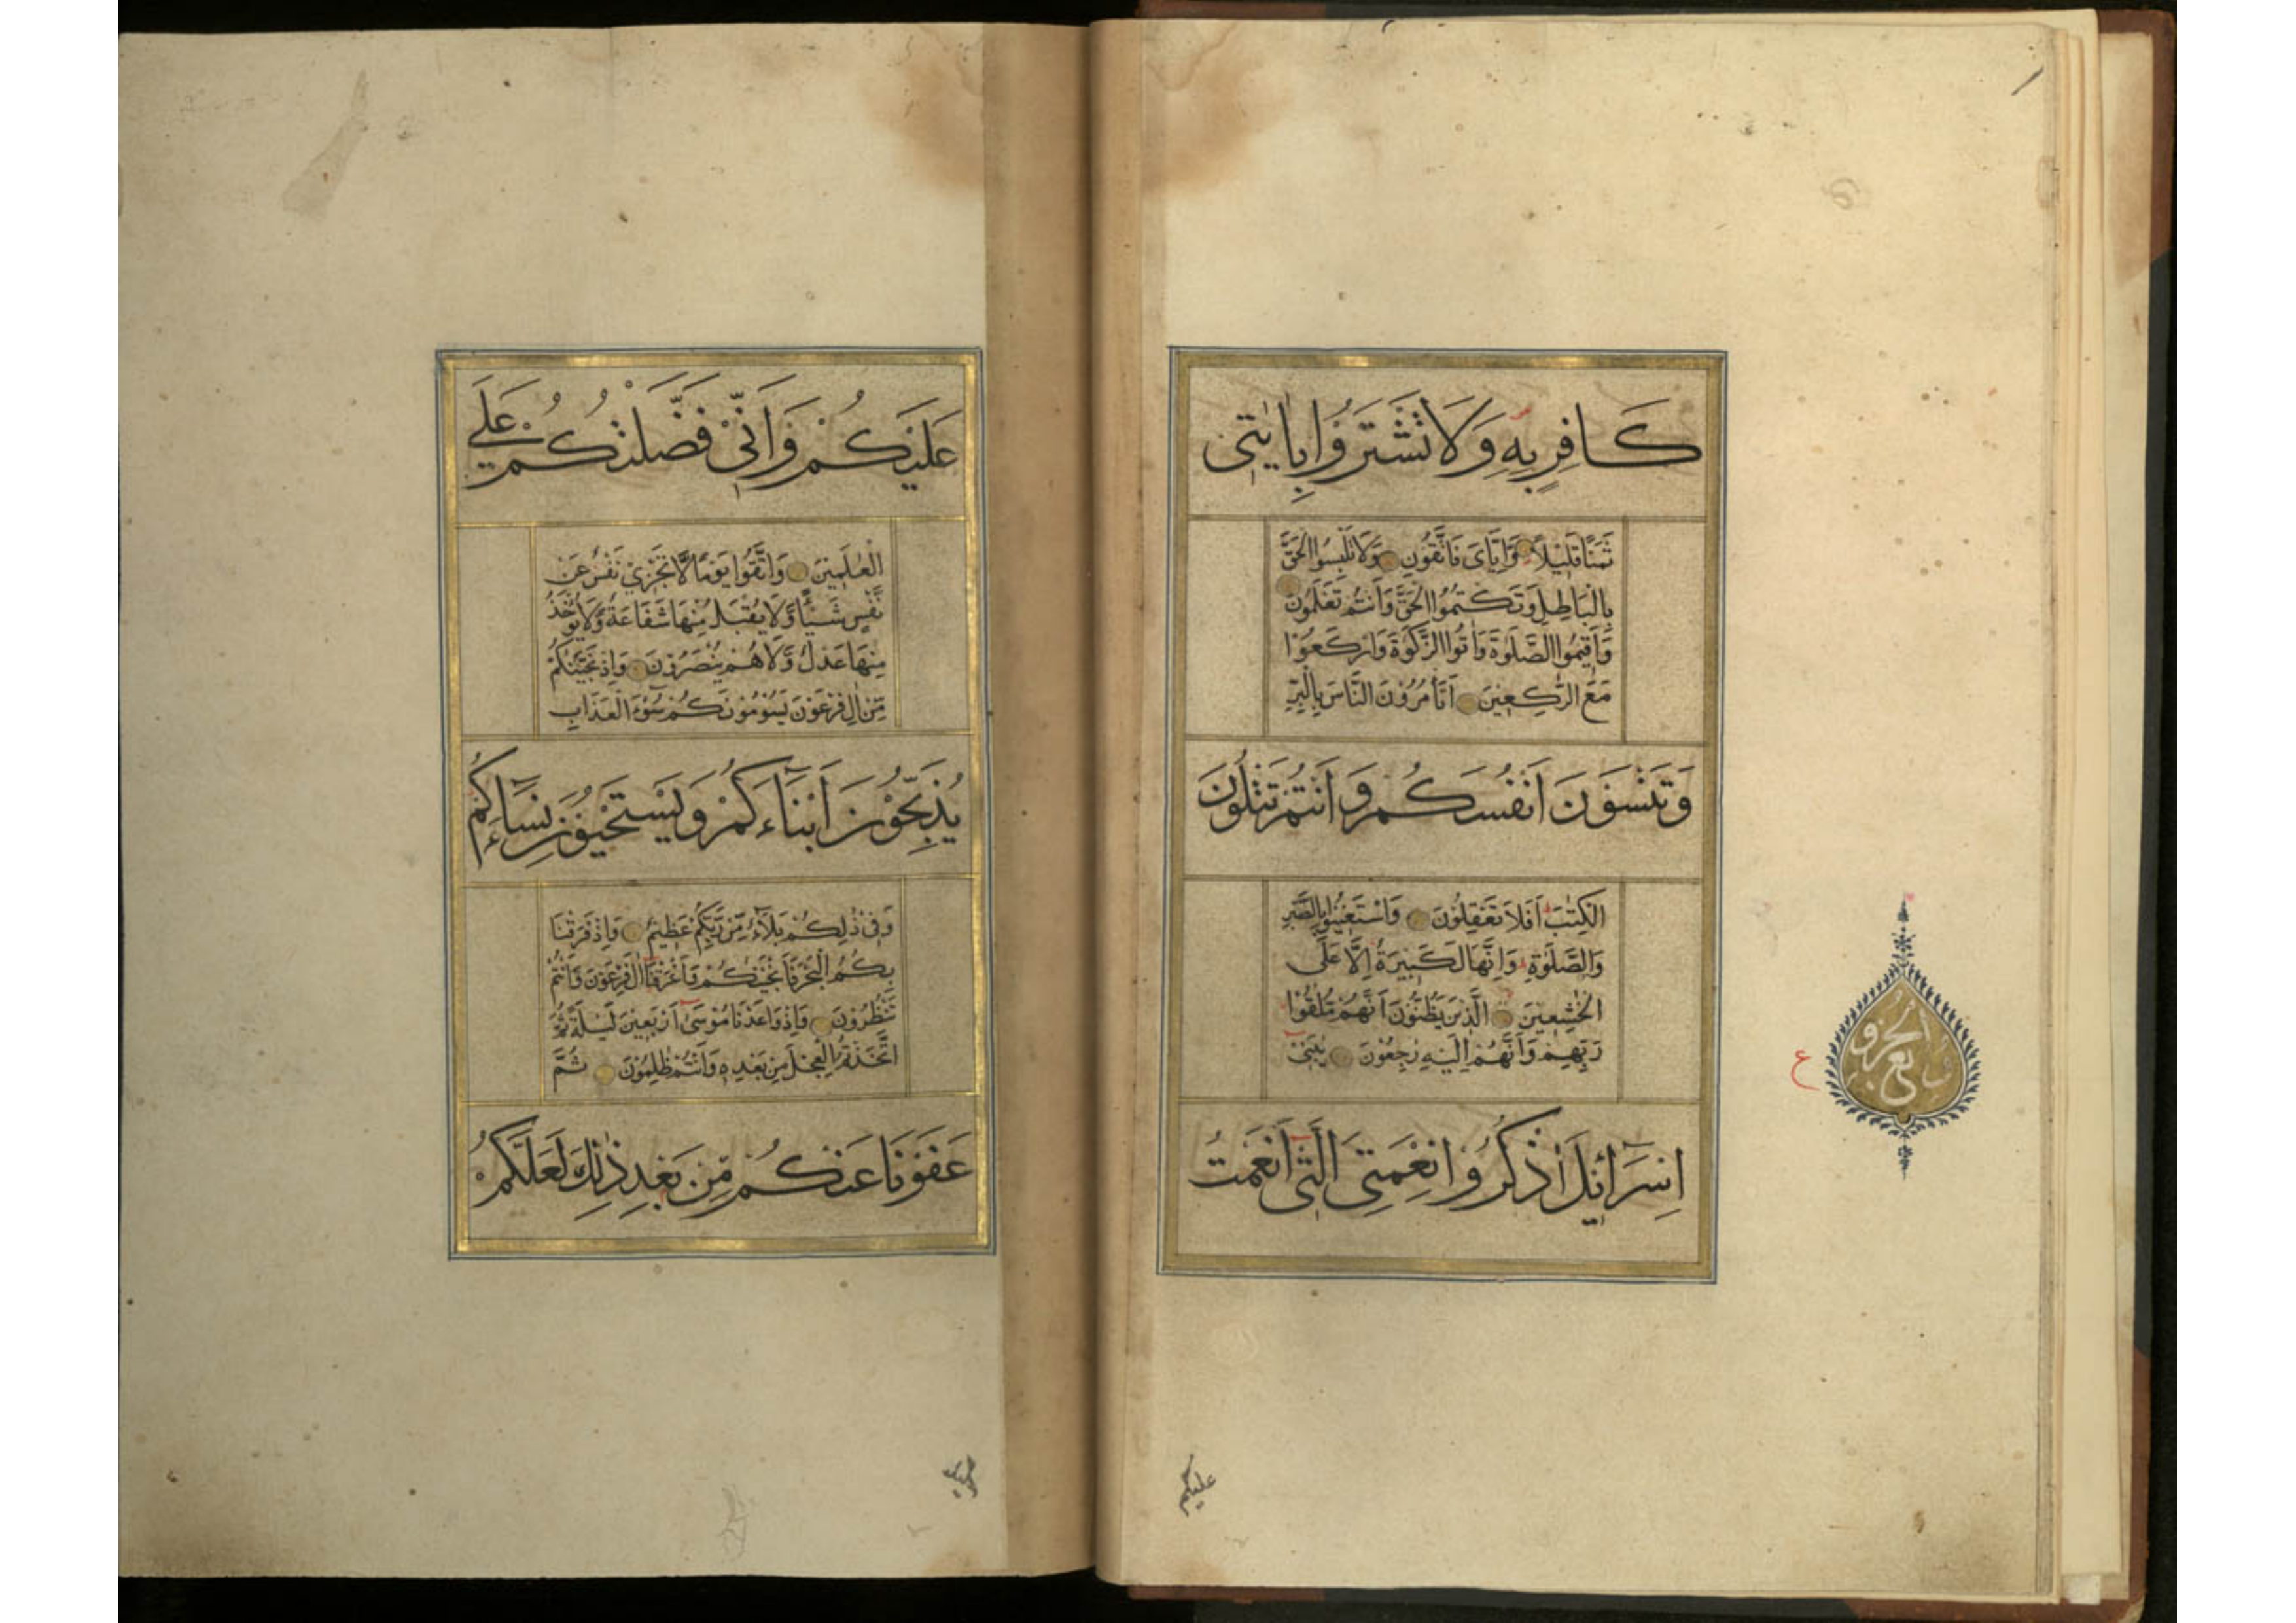 كَافِرٍ بِهِ وَلَا تَشْتَرُوا بِاٰيٰتِى
ثَمَنًا قَلِيْلًا وَّاِيَّاىَ فَاتَّقُوْنِ وَلَا تَلْبِسُوا الْحَقَّ
بِالْبَاطِلِ وَتَكْتُمُوا الْحَقَّ وَاَنْتُمْ تَعْلَمُوْنَ
وَاَقِيْمُوا الصَّلٰوةَ وَاٰتُوا الزَّكٰوةَ وَارْكَعُوْا
مَعَ الرّٰكِعِيْنَ اَتَأْمُرُوْنَ النَّاسَ بِالْبِرِّ
وَتَنْسَوْنَ اَنْفُسَكُمْ وَاَنْتُمْ تَتْلُوْنَ
الْكِتٰبَ اَفَلَا تَعْقِلُوْنَ وَاسْتَعِيْنُوْا بِالصَّبْرِ
وَالصَّلٰوةِ وَاِنَّهَا لَكَبِيْرَةٌ اِلَّا عَلَى
الْخٰشِعِيْنَ الَّذِيْنَ يَظُنُّوْنَ اَنَّهُمْ مُلٰقُوْا
رَبِّهِمْ وَاَنَّهُمْ اِلَيْهِ رٰجِعُوْنَ يٰبَنِىْ
اِسْرَآئِيْلَ اذْكُرُوْا نِعْمَتِىَ الَّتِىْ اَنْعَمْتُ
ع
عليكم
عَلَيْكُمْ وَاَنِّىْ فَضَّلْتُكُمْ عَلَى
الْعٰلَمِيْنَ وَاتَّقُوْا يَوْمًا لَّا تَجْزِىْ نَفْسٌ عَنْ
نَّفْسٍ شَيْـًٔا وَّلَا يُقْبَلُ مِنْهَا شَفَاعَةٌ وَّلَا يُؤْخَذُ
مِنْهَا عَدْلٌ وَّلَا هُمْ يُنْصَرُوْنَ وَاِذْ نَجَّيْنٰكُمْ
مِّنْ اٰلِ فِرْعَوْنَ يَسُوْمُوْنَكُمْ سُوْٓءَ الْعَذَابِ
يُذَبِّحُوْنَ اَبْنَآءَكُمْ وَيَسْتَحْيُوْنَ نِسَآءَكُمْ
وَفِىْ ذٰلِكُمْ بَلَآءٌ مِّنْ رَّبِّكُمْ عَظِيْمٌ وَاِذْ فَرَقْنَا
بِكُمُ الْبَحْرَ فَاَنْجَيْنٰكُمْ وَاَغْرَقْنَا اٰلَ فِرْعَوْنَ وَاَنْتُمْ
تَنْظُرُوْنَ وَاِذْ وَاعَدْنَا مُوْسٰىٓ اَرْبَعِيْنَ لَيْلَةً ثُمَّ
اتَّخَذْتُمُ الْعِجْلَ مِنْ بَعْدِهٖ وَاَنْتُمْ ظٰلِمُوْنَ ثُمَّ
عَفَوْنَا عَنْكُمْ مِّنْ بَعْدِ ذٰلِكَ لَعَلَّكُمْ